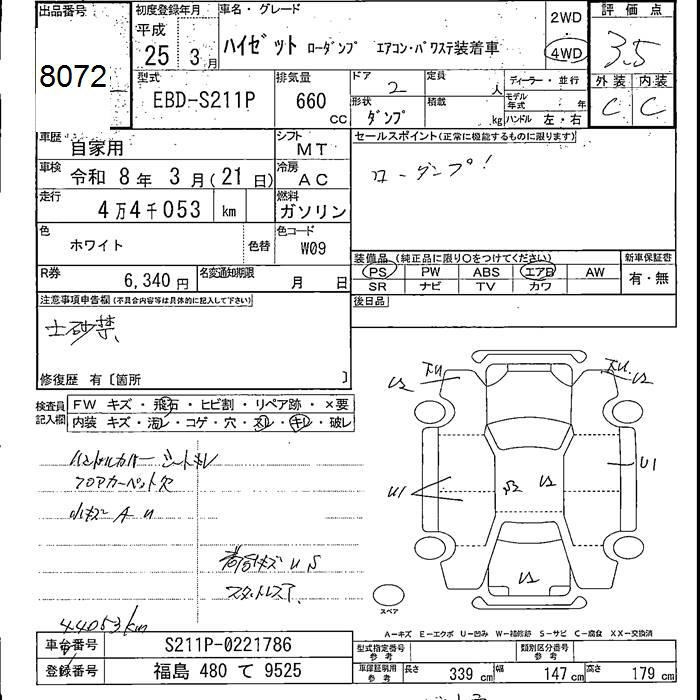 出品番号
8072
初度登録年月
平成
25 3月
車名・グレード
ハイゼット ローダンプ エアコン・パワステ装着車
2WD
・
4WD
評価点
3.5
外装 内装
C C
型式
EBD-S211P
排気量
660 cc
ドア
2
定員
人
形状
ダンプ
積載
kg
ディーラー・並行
モデル年式 ・ 年
ハンドル 左・右
車歴
自家用
シフト
MT
車検
令和 8年 3月(21日)
冷房
AC
走行
4万4千053 km
燃料
ガソリン
色
ホワイト
色替
色コード
W09
R券
6,340円
名変通知期限
月 日
セールスポイント(正常に機能するものに限ります)
ローダンプ!
装備品 (純正品に限り○をつけてください)
PS PW ABS エアB AW
SR ナビ TV カワ
新車保証書
有・無
後日品
注意事項申告欄(不具合内容等は具体的に記入して下さい)
土砂禁
修復歴 有〔箇所 〕
検査員記入欄
FW キズ・飛石・ヒビ割・リペア跡・×要
内装 キズ・汚レ・コゲ・穴・スレ・キレ・破レ
ハンドルカバー シートキレ
フロアカーペット欠
小キズ A U
荷台キズ U S
スタットレス
44053km
US
US
U1
U1
US
US
スペア
A-キズ E-エクボ U-凹み W-補修跡 S-サビ C-腐食 XX-交換済
車台番号
S211P-0221786
登録番号
福島 480 て 9525
型式指定番号
参考
類別区分番号
参考
車庫証明用
参考
長さ 339 cm
幅 147 cm
高さ 179 cm